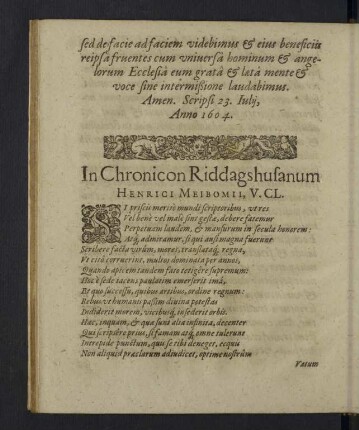 sed de facie ad faciem videbimus & eius beneficiis
reipsa fruentes cum vniversa hominum & ange-
lorum Ecclesiâ eum gratâ & lætâ mente &
voce sine intermissione laudabimus.
Amen. Scripsi 23. Iulij,
Anno 1604.
In Chronicon Riddagshusanum
HENRICI MEIBOMII, V. CL.
SI priscis meritò mundi scriptoribus, vt res
Vel benè vel malè sint gestæ, debere fatemur
Perpetuam laudem, & mansurum in secula honorem:
Atq́; admiramur, si qui ausi magna fuerunt
Scribere facta virûm, mores, translataq́; regna,
Vt citò corruerint, multos dominata per annos,
Quando apicem tandem fato tetigere supremum:
Huc è sede tacens paulatim emerserit imâ,
Et quo successu, quibus artibus, ordine regnum:
Rebus vt humanis passim divina potestas
Indiderit morem, vicibusq́; insederit orbis.
Hæc, inquam, & quæ sunt alia infinita, decenter
Qui scripsêre prius, si famam atq́; omne tulerunt
Intrepidè punctum, quis te tibi deneget, ecquis
Non aliquid præclarum adiudicet, optime nostrûm
Vatum